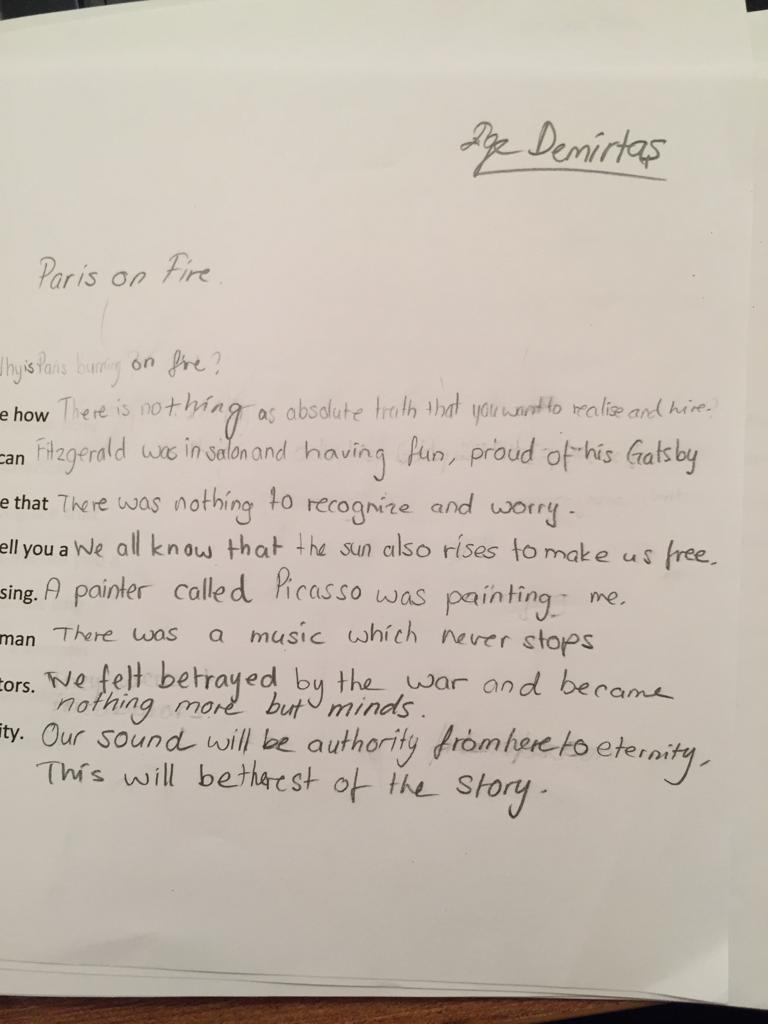 Demirtaş
Paris on Fire.
Why is Paris burning on fire?
e how There is nothing as absolute truth that you want to realise and hire.
can Fitzgerald was in salon and having fun, proud of his Gatsby
e that There was nothing to recognize and worry.
ell you a We all know that the sun also rises to make us free.
sing. A painter called Picasso was painting me.
man There was a music which never stops
tors. We felt betrayed by the war and became
nothing more but minds.
ity. Our sound will be authority from here to eternity,
This will be the rest of the story.